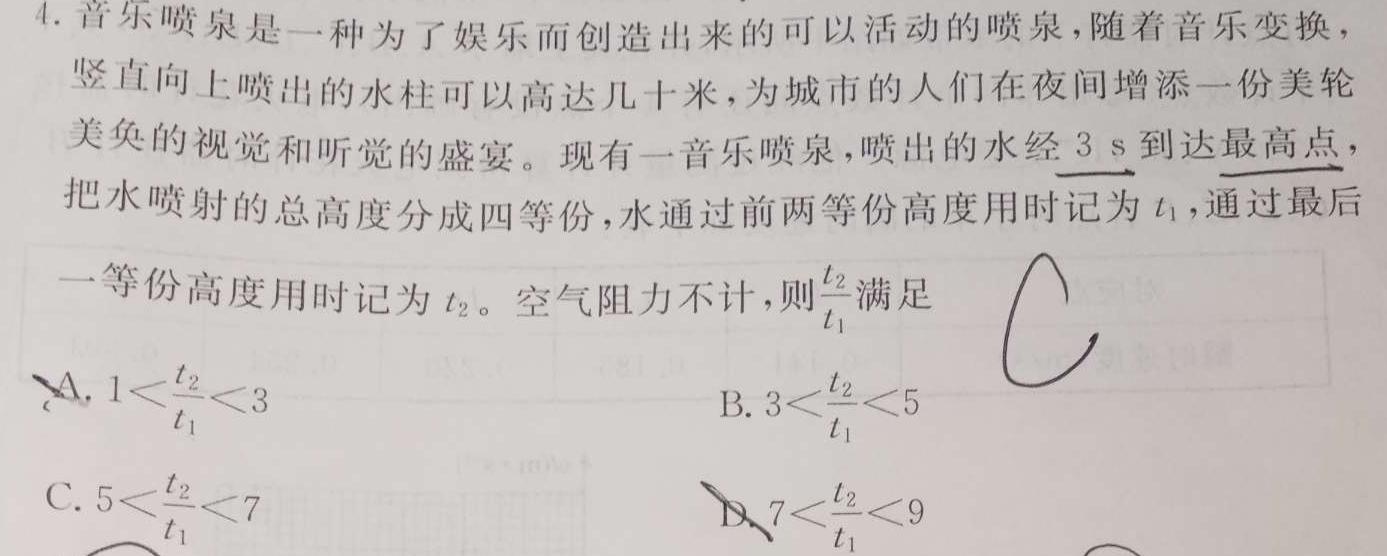 4. 音乐喷泉是一种为了娱乐而创造出来的可以活动的喷泉,随着音乐变换,
竖直向上喷出的水柱可以高达几十米,为城市的人们在夜间增添一份美轮
美奂的视觉和听觉的盛宴。现有一音乐喷泉,喷出的水经 3 s 到达最高点,
把水喷射的总高度分成四等份,水通过前两等份高度用时记为 t₁,通过最后
一等份高度用时记为 t₂。空气阻力不计,则 t₂/t₁ 满足
A. 1<t₂/t₁<3 B. 3<t₂/t₁<5
C. 5<t₂/t₁<7 D. 7<t₂/t₁<9